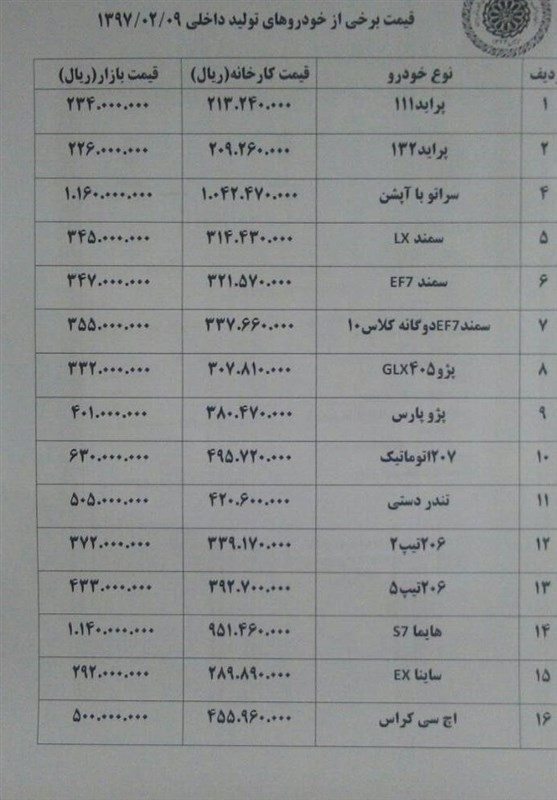 قیمت برخی از خودروهای تولید داخلی ۱۳۹۷/۰۲/۰۹
دیف نوع خودرو قیمت کارخانه(ریال) قیمت بازار(ریال)
۱ پراید۱۱۱ ۲۱۳.۲۴۰.۰۰۰ ۲۳۴.۰۰۰.۰۰۰
۲ پراید۱۳۲ ۲۰۹.۲۶۰.۰۰۰ ۲۲۶.۰۰۰.۰۰۰
۴ سراتو با آپشن ۱.۰۴۲.۴۷۰.۰۰۰ ۱.۱۶۰.۰۰۰.۰۰۰
۵ سمند LX ۳۱۴.۴۳۰.۰۰۰ ۳۴۵.۰۰۰.۰۰۰
۶ سمند EF7 ۳۲۱.۵۷۰.۰۰۰ ۳۴۷.۰۰۰.۰۰۰
۷ سمندEF7دوگانه کلاس۱۰ ۳۳۷.۶۶۰.۰۰۰ ۳۵۵.۰۰۰.۰۰۰
۸ پژو۴۰۵GLX ۳۰۷.۸۱۰.۰۰۰ ۳۳۲.۰۰۰.۰۰۰
۹ پژو پارس ۳۸۰.۴۷۰.۰۰۰ ۴۰۱.۰۰۰.۰۰۰
۱۰ ۲۰۷اتوماتیک ۴۹۵.۷۲۰.۰۰۰ ۶۳۰.۰۰۰.۰۰۰
۱۱ تندر دستی ۴۲۰.۶۰۰.۰۰۰ ۵۰۵.۰۰۰.۰۰۰
۱۲ ۲۰۶تیپ۲ ۳۳۹.۱۷۰.۰۰۰ ۳۷۲.۰۰۰.۰۰۰
۱۳ ۲۰۶تیپ۵ ۳۹۲.۷۰۰.۰۰۰ ۴۳۳.۰۰۰.۰۰۰
۱۴ هایما S7 ۹۵۱.۴۶۰.۰۰۰ ۱.۱۴۰.۰۰۰.۰۰۰
۱۵ ساینا EX ۲۸۹.۸۹۰.۰۰۰ ۲۹۲.۰۰۰.۰۰۰
۱۶ اچ سی کراس ۴۵۵.۹۶۰.۰۰۰ ۵۰۰.۰۰۰.۰۰۰